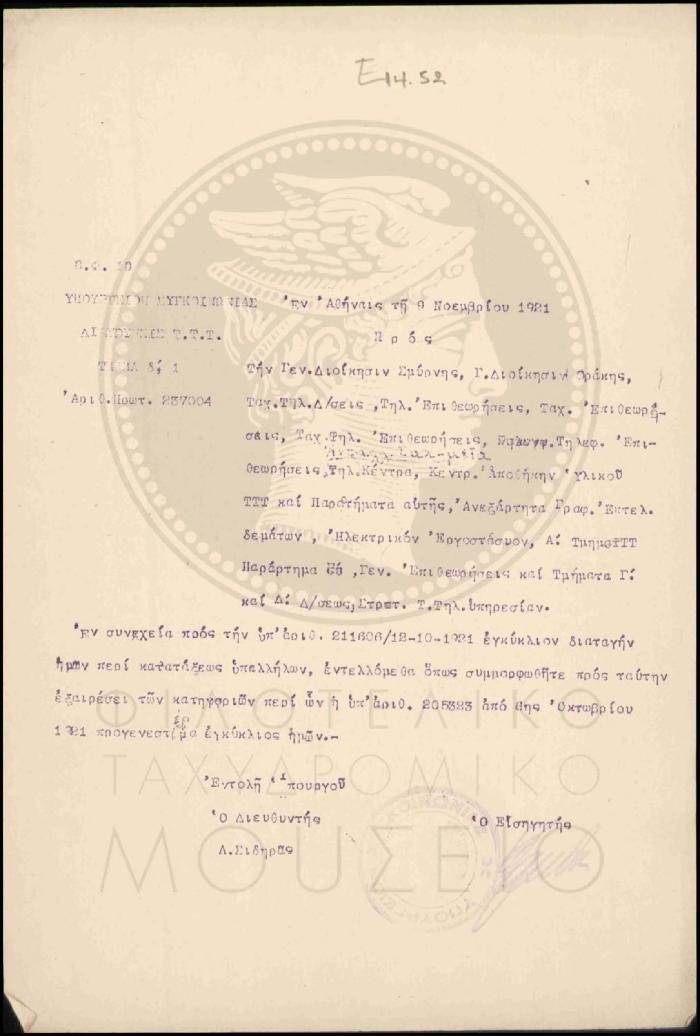 E14.52
Π.Φ. 10
ΥΠΟΥΡΓΕΙΟΝ ΣΥΓΚΟΙΝΩΝΙΑΣ
Ἐν Ἀθήναις τῇ 9 Νοεμβρίου 1921
ΔΙΕΥΘΥΝΣΙΣ Τ.Τ.Τ.
Πρός
ΤΜΗΜΑ δ; 1
Τήν Γεν.Διοίκησιν Σμύρνης, Γ.Διοίκησιν Θράκης,
Ἀριθ.Πρωτ. 237004
Ταχ.Τηλ.Δ/σεις ,Τηλ. Ἐπιθεωρήσεις, Ταχ. Ἐπιθεωρή-
σεις, Ταχ.Τηλ. Ἐπιθεωρήσεις, Τηλεφ. Ἐπι-
θεωρήσεις,Τηλ.Κέντρα, Κεντρ.Ἀποθήκην Ὑλικοῦ
ΤΤΤ καί Παραρτήματα αὐτῆς,Ἀνεξάρτητα Γραφ.Ἐπιτελ.
δεμάτων , Ἠλεκτρικόν Ἐργοστάσιον, Α: Τμῆμα ΤΤΤ
Παράρτημα ,Γεν. Ἐπιθεωρήσεις καί Τμήματα Γ:
καί Δ: Δ/σεως,Στρατ. Τ.Τηλ.ὑπηρεσίαν.
Ἐν συνεχείᾳ πρός τήν ὑπ'ἀριθ. 211606/12-10-1921 ἐγκύκλιον διαταγήν
ἡμῶν περί κατατάξεως ὑπαλλήλων, ἐντελλόμεθα ὅπως συμμορφωθῆτε πρός ταύτην
ἐξαιρέσει τῶν κατηγοριῶν περί ὧν ἡ ὑπ'ἀριθ. 205323 ἀπό 6ης Ὀκτωβρίου
1921 προγενεστέρα ἐγκύκλιος ἡμῶν.-
Ἐντολῇ Ὑπουργοῦ
Ὁ Διευθυντής
Ὁ Εἰσηγητής
Λ.Σιδηρᾶς
ΦΙΛΟΤΕΛΙΚΟ
ΤΑΧΥΔΡΟΜΙΚΟ
ΜΟΥΣΕΙΟ